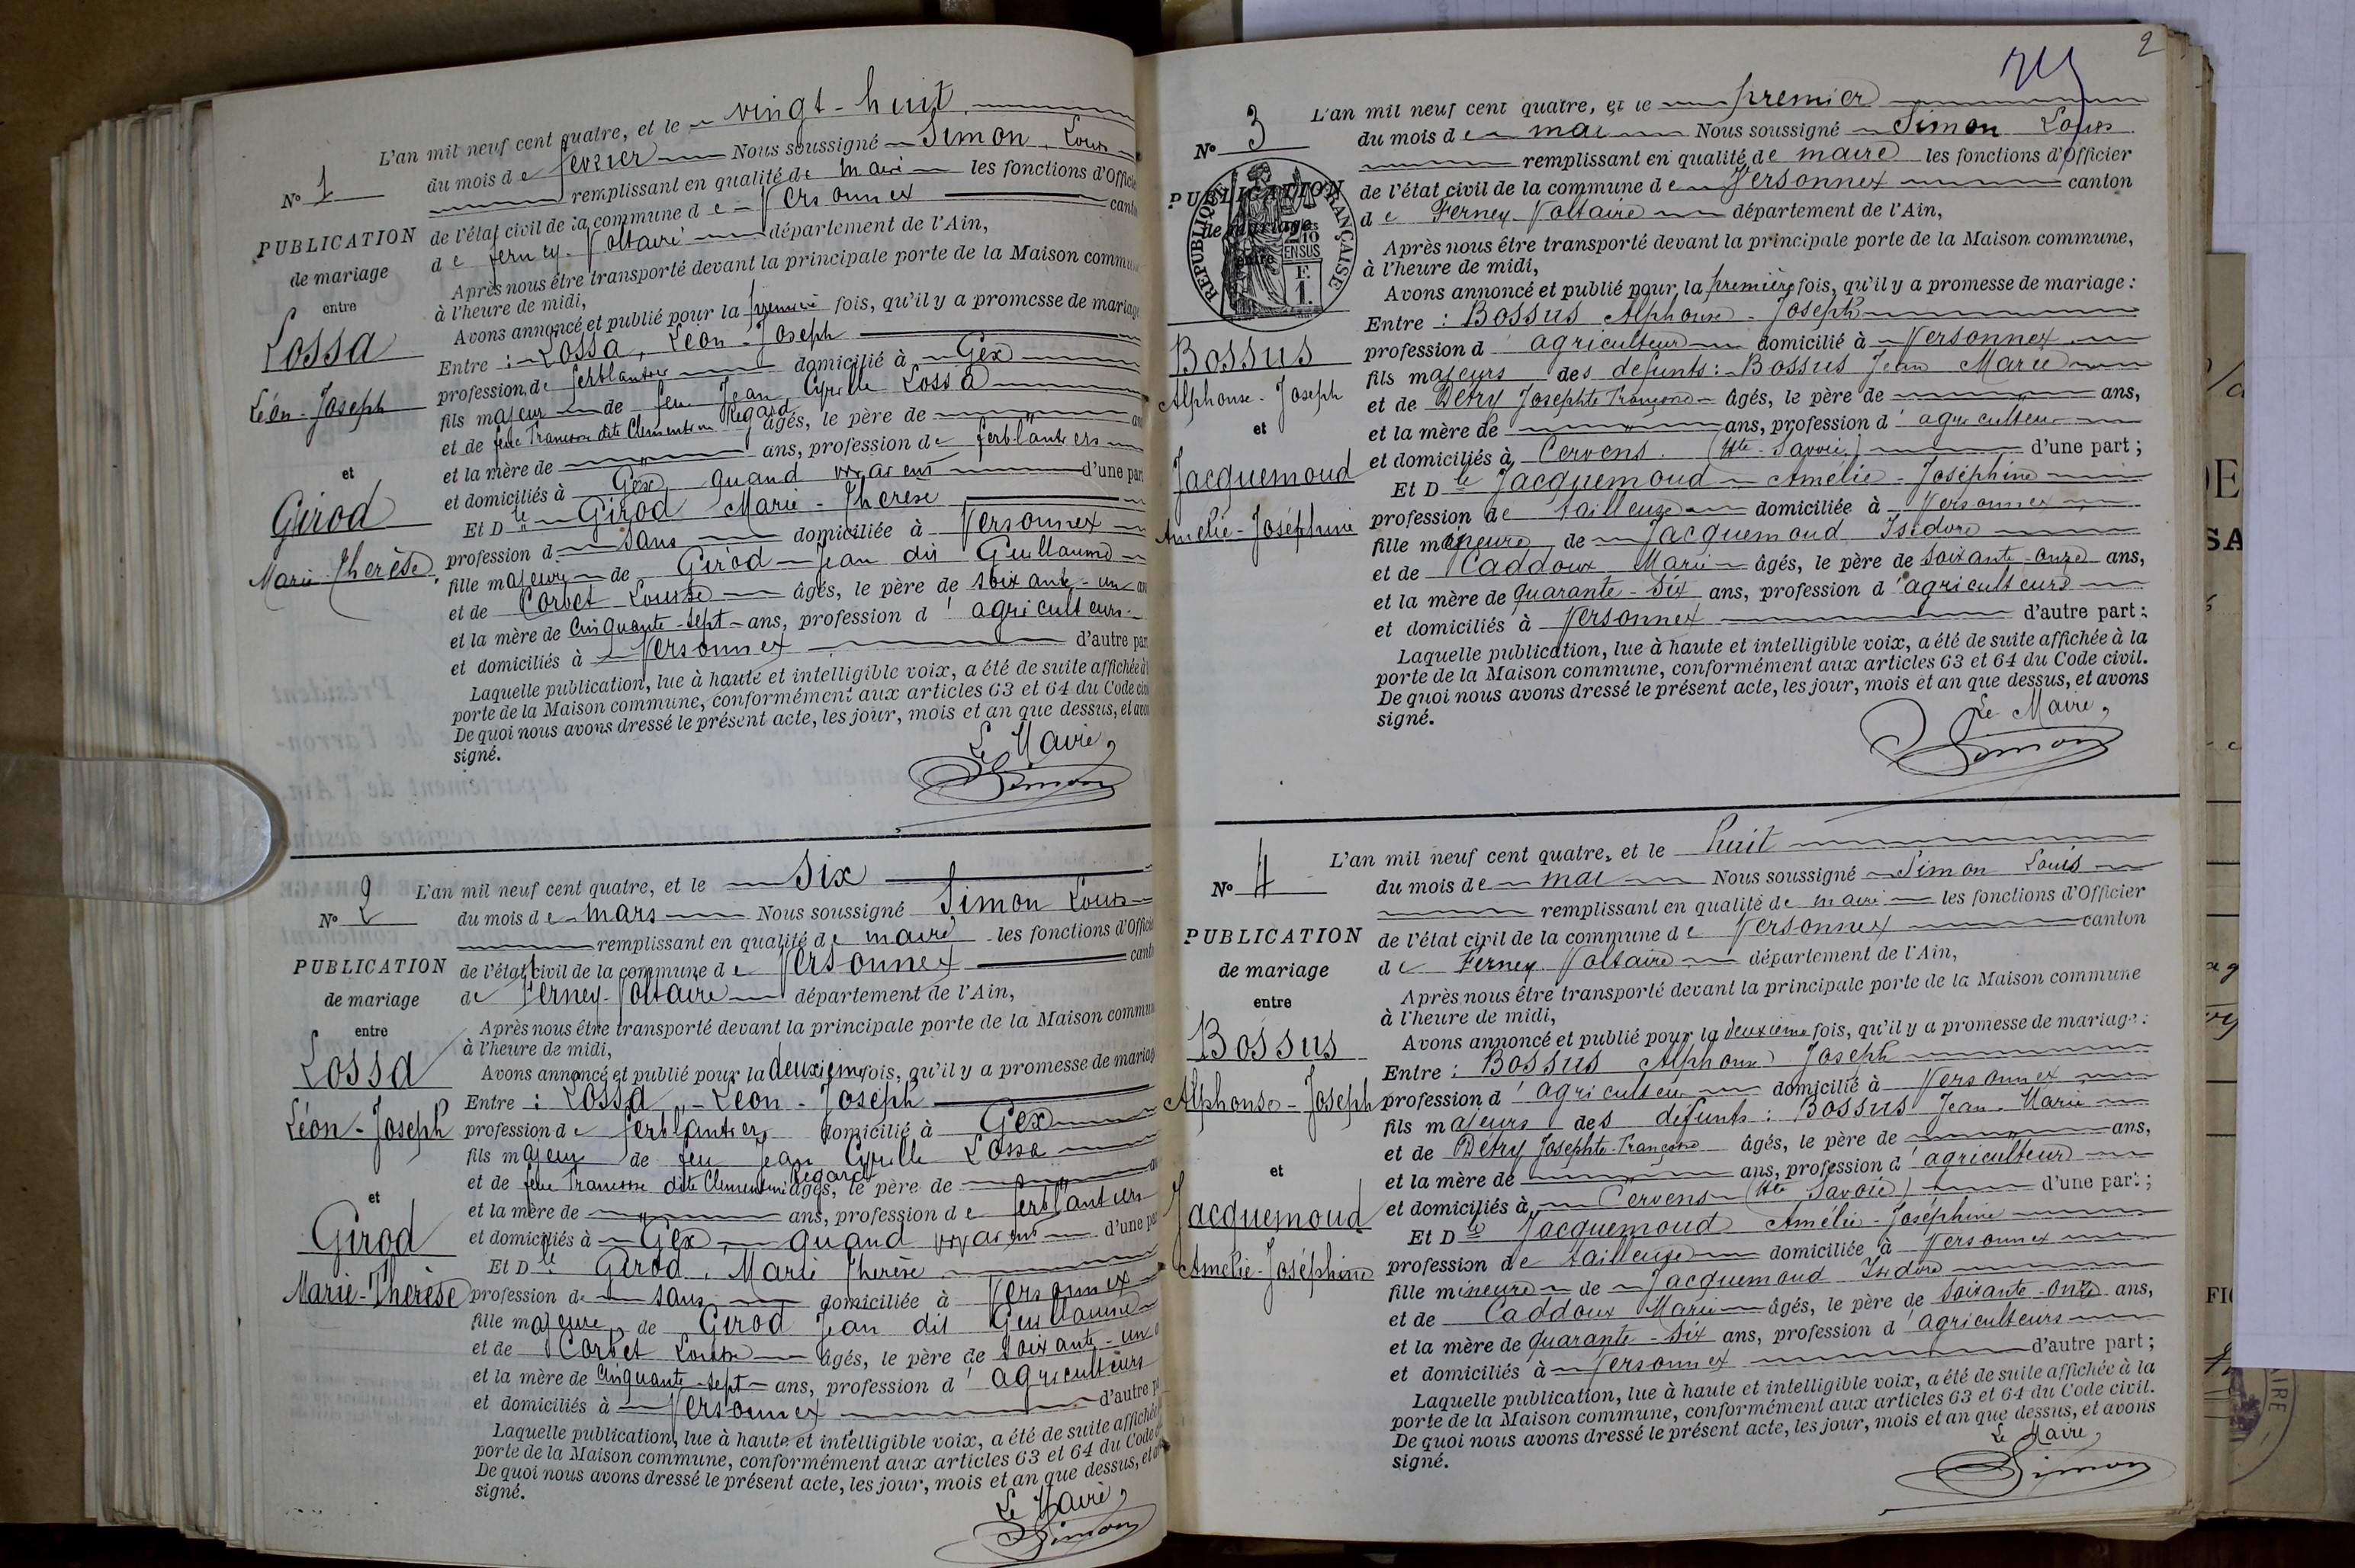 L'an mil neuf cent quatre, et le vingt-huit
N° 1
du mois de fevrier Nous soussigné Simon Louis
remplissant en qualité de maire les fonctions d'Officie
de l'état civil de la commune de Versonnex canto
PUBLICATION
de mariage
entre
Lossa
Léon-Joseph
et
Girod
Marie-Therèse
de Ferney-Voltaire département de l'Ain,
Après nous être transporté devant la principale porte de la Maison commu
à l'heure de midi,
Avons annoncé et publié pour la première fois, qu'il y a promesse de mariag
Entre : Lossa, Léon-Joseph
profession de ferblantier domicilié à Gex
fils majeur de feu Jean Cyrille Lossa
et de feue Francoise dite Clementine Regard âgés, le père de " an
et la mère de " ans, profession de ferblantiers
et domiciliés à Gex, quand vivaient d'une part
Et Dlle Girod Marie-Therèse
profession d sans domiciliée à Versonnex
fille majeure de Girod Jean dit Guillaume
et de Corbet Louise âgés, le père de soixante-un an
et la mère de cinquante-sept ans, profession d'agriculteurs
et domiciliés à Versonnex d'autre par
Laquelle publication, lue à haute et intelligible voix, a été de suite affichée à l
porte de la Maison commune, conformément aux articles 63 et 64 du Code civi
De quoi nous avons dressé le présent acte, les jour, mois et an que dessus, et avon
signé.
Le Maire,
Simon
L'an mil neuf cent quatre, et le six
N° 2
du mois de mars Nous soussigné Simon Louis
remplissant en qualité de maire les fonctions d'Officie
de l'état civil de la commune de Versonnex canto
PUBLICATION
de mariage
entre
Lossa
Léon-Joseph
et
Girod
Marie-Thérèse
de Ferney-Voltaire département de l'Ain,
Après nous être transporté devant la principale porte de la Maison commun
à l'heure de midi,
Avons annoncé et publié pour la deuxième fois, qu'il y a promesse de mariag
Entre : Lossa, Léon-Joseph
profession de ferblantier, domicilié à Gex
fils majeur de feu Jean Cyrille Lossa
et de feue Francoise dite Clementine Regard âgés, le père de " an
et la mère de " ans, profession de ferblantiers
et domiciliés à Gex, quand vivaient d'une pa
Et Dlle Girod, Marie Therèse
profession de sans domiciliée à Versonnex
fille majeure de Girod Jean dit Guillaume
et de Corbet Louise âgés, le père de soixante-un a
et la mère de cinquante-sept ans, profession d'agriculteurs
et domiciliés à Versonnex d'autre p
Laquelle publication, lue à haute et intelligible voix, a été de suite affichée
porte de la Maison commune, conformément aux articles 63 et 64 du Code c
De quoi nous avons dressé le présent acte, les jour, mois et an que dessus, et av
signé.
Le Maire,
Simon
2
L'an mil neuf cent quatre, et le premier
N° 3
du mois de mai Nous soussigné Simon Louis
remplissant en qualité de maire les fonctions d'Officier
de l'état civil de la commune de Versonnex canton
PUBLICATION
de mariage
entre
RÉPUBLIQUE FRANÇAISE
2/10 EN SUS
F. 1.
Bossus
Alphonse-Joseph
et
Jacquemoud
Amélie-Joséphine
de Ferney-Voltaire département de l'Ain,
Après nous être transporté devant la principale porte de la Maison commune,
à l'heure de midi,
Avons annoncé et publié pour la première fois, qu'il y a promesse de mariage :
Entre : Bossus Alphonse-Joseph
profession d'agriculteur domicilié à Versonnex
fils majeurs des defunts : Bossus Jean Marie
et de Detry Josephte Françoise âgés, le père de " ans,
et la mère de " ans, profession d'agriculteur
et domiciliés à Cervens (Hte-Savoie) d'une part ;
Et Dlle Jacquemoud Amélie-Joséphine
profession de tailleuse domiciliée à Versonnex
fille mineure de Jacquemoud Isidore
et de Caddoux Marie âgés, le père de soixante-onze ans,
et la mère de quarante-six ans, profession d'agriculteurs
et domiciliés à Versonnex d'autre part :
Laquelle publication, lue à haute et intelligible voix, a été de suite affichée à la
porte de la Maison commune, conformément aux articles 63 et 64 du Code civil.
De quoi nous avons dressé le présent acte, les jour, mois et an que dessus, et avons
signé.
Le Maire,
Simon
L'an mil neuf cent quatre, et le huit
N° 4
du mois de mai Nous soussigné Simon Louis
remplissant en qualité de maire les fonctions d'Officier
de l'état civil de la commune de Versonnex canton
PUBLICATION
de mariage
entre
Bossus
Alphonse-Joseph
et
Jacquemoud
Amélie-Joséphine
de Ferney Voltaire département de l'Ain,
Après nous être transporté devant la principale porte de la Maison commune
à l'heure de midi,
Avons annoncé et publié pour la deuxième fois, qu'il y a promesse de mariage :
Entre : Bossus Alphonse Joseph
profession d'agriculteur domicilié à Versonnex
fils majeurs des defunts : Bossus Jean-Marie
et de Detry Josephte-Françoise âgés, le père de " ans,
et la mère de " ans, profession d'agriculteur
et domiciliés à Cervens (Hte Savoie) d'une part ;
Et Dlle Jacquemoud Amélie-Joséphine
profession de tailleuse domiciliée à Versonnex
fille mineure de Jacquemoud Isidore
et de Caddoux Marie âgés, le père de soixante-onze ans,
et la mère de quarante-six ans, profession d'agriculteurs
et domiciliés à Versonnex d'autre part ;
Laquelle publication, lue à haute et intelligible voix, a été de suite affichée à la
porte de la Maison commune, conformément aux articles 63 et 64 du Code civil.
De quoi nous avons dressé le présent acte, les jour, mois et an que dessus, et avons
signé.
Le Maire,
Simon